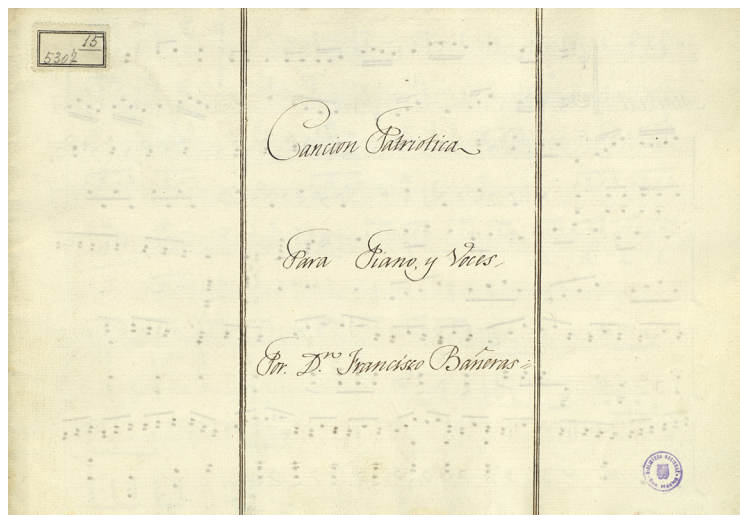 15
5307
Cancion Patriotica
Para Piano, y Voces
Por. D.n Francisco Bañeras
BIBLIOTECA NACIONAL